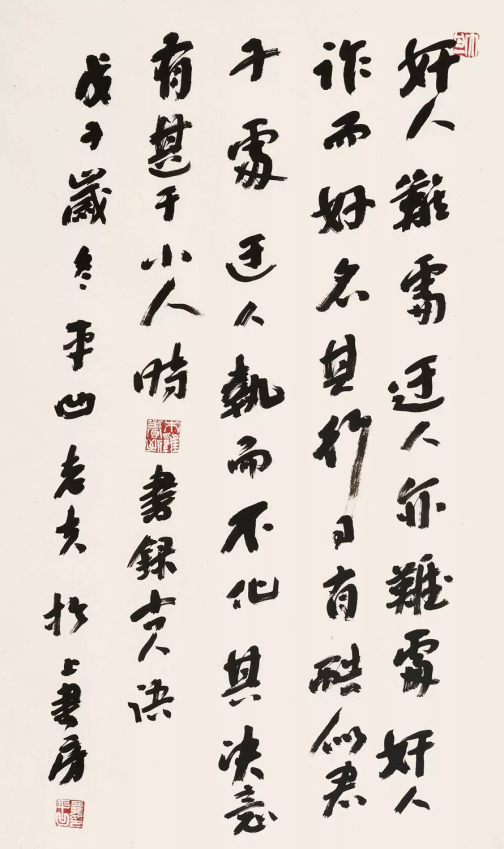 奸人難處迂人亦難處奸人
詐而好名其行有酷似君
子處迂人執而不化其决意
有甚于小人時 書録古人語
戊子歲冬平凹老夫於上書房